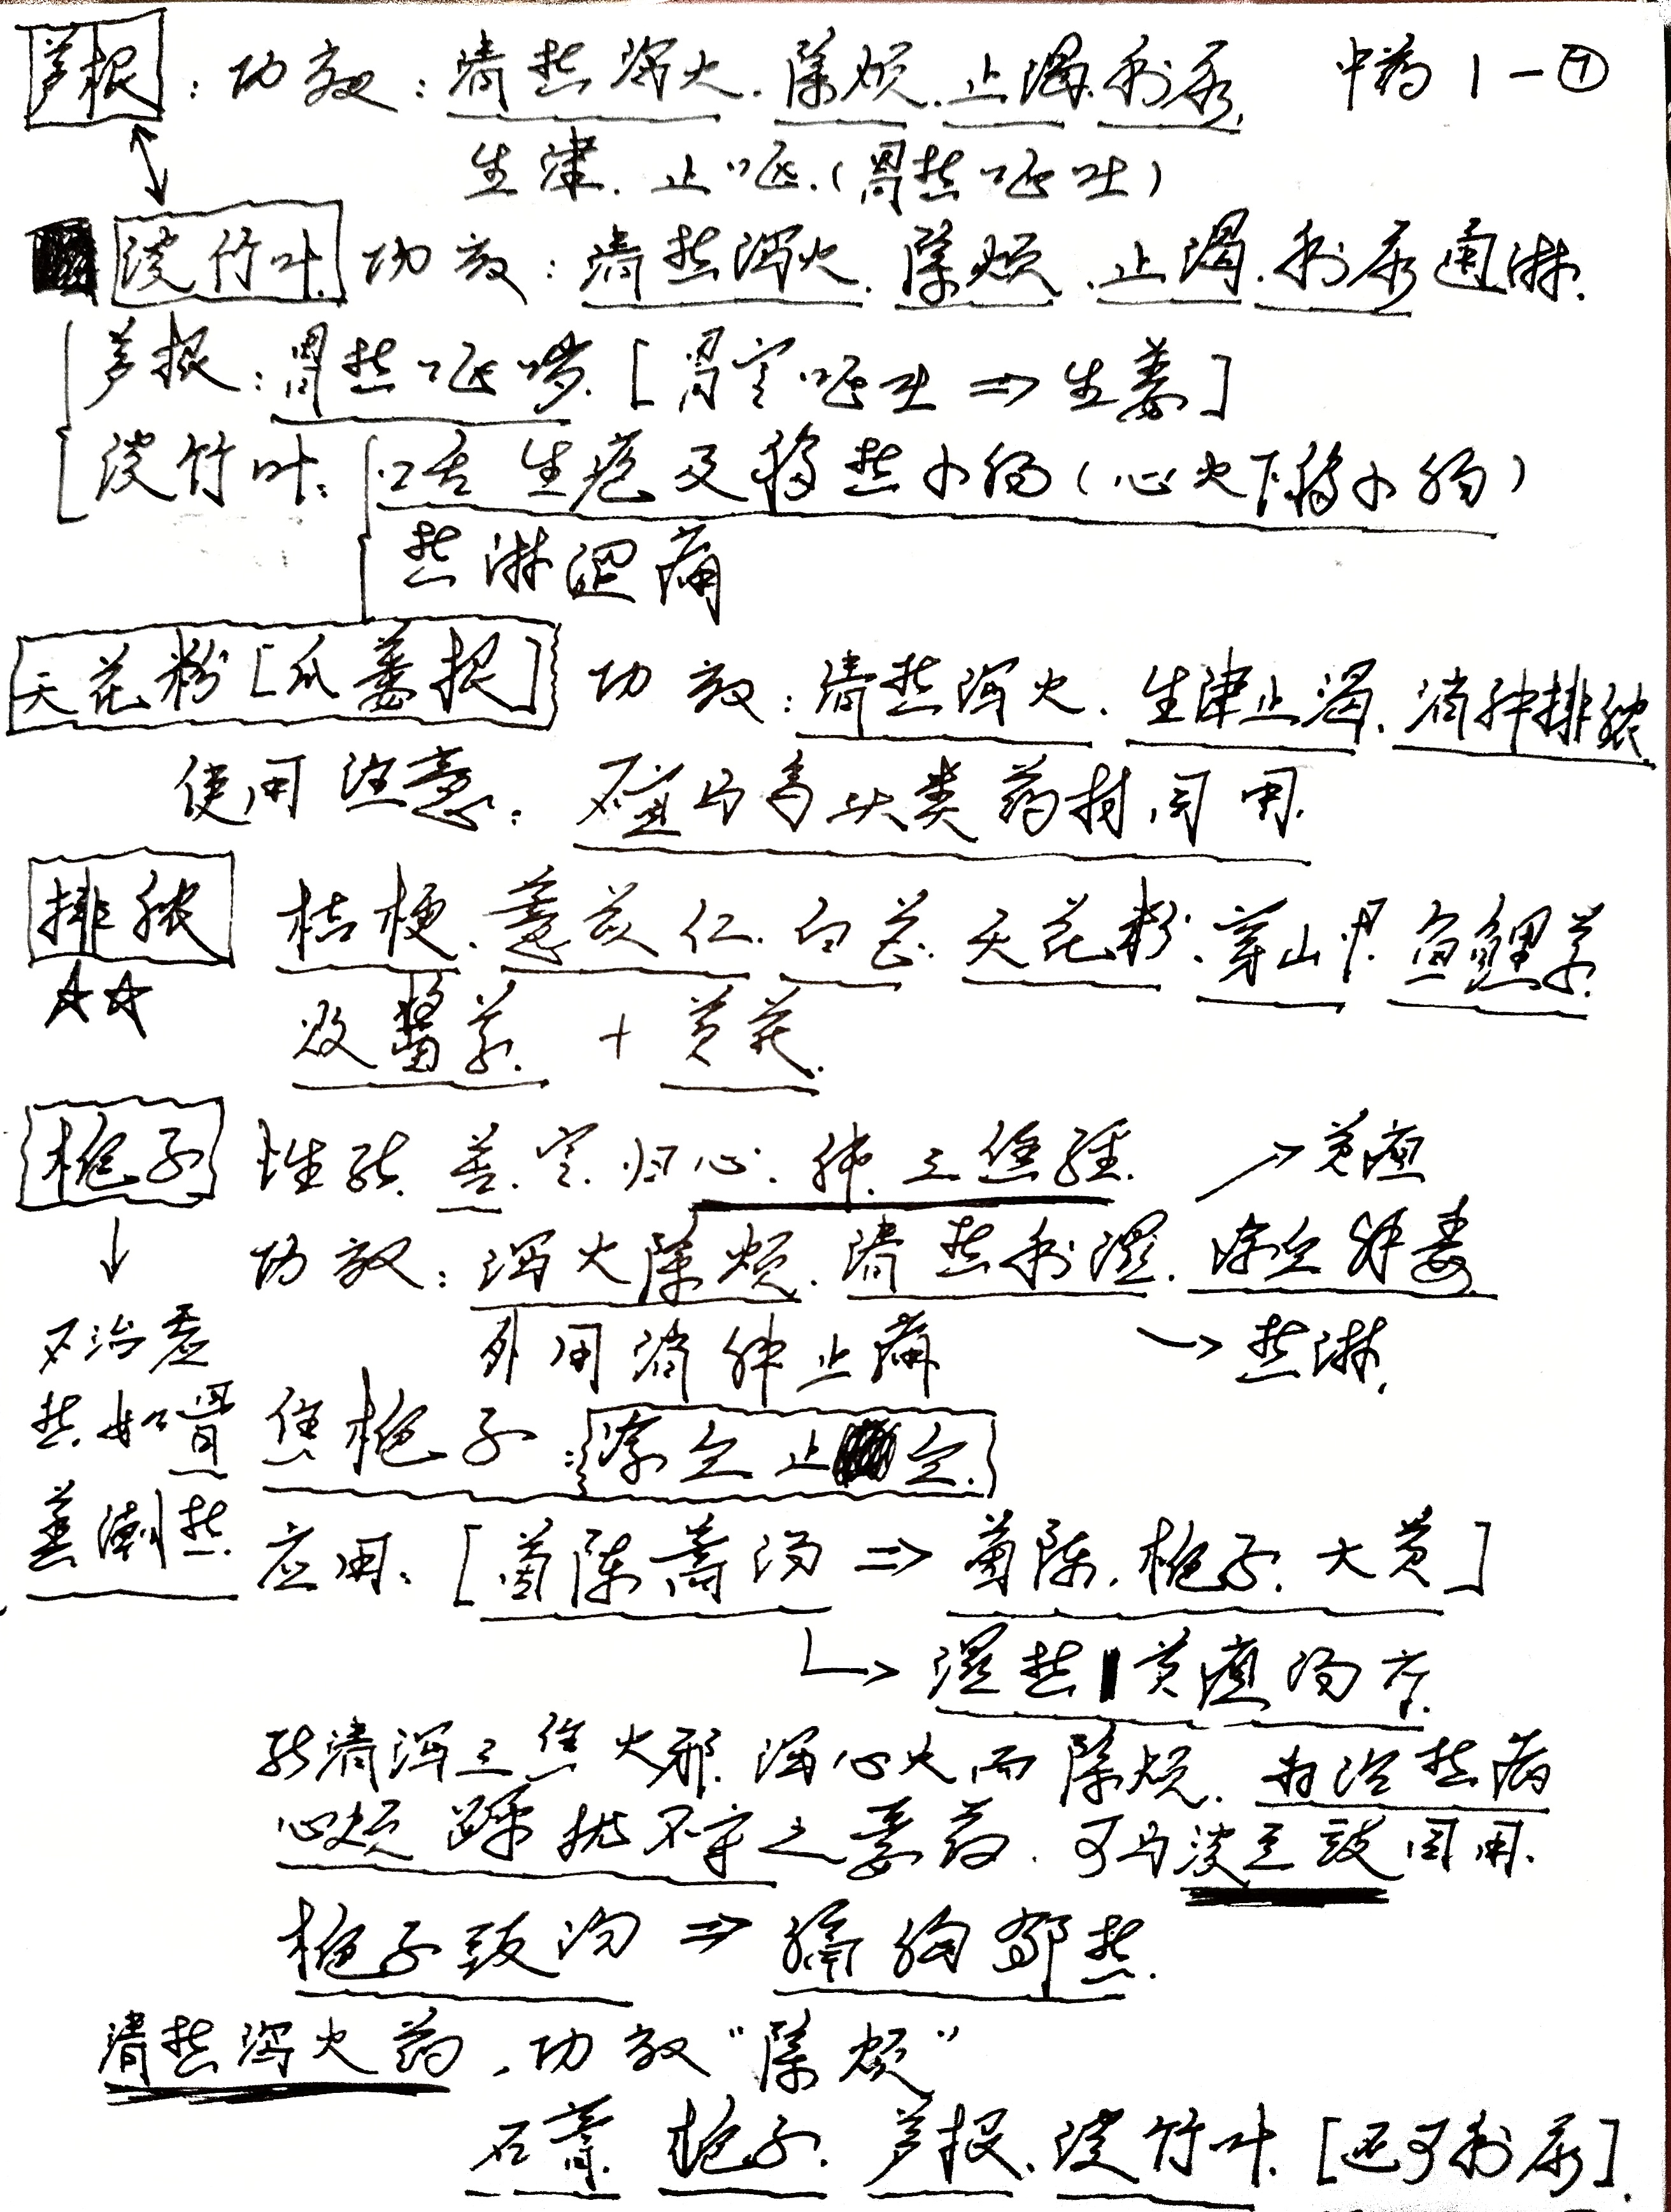 芦根：功效：清热泻火、除烦、止渴、利尿， 中药1-⑦
生津、止呕、（胃热呕吐）
淡竹叶 功效：清热泻火、除烦、止渴、利尿通淋.
芦根：胃热呕哕.［胃寒呕吐⇒生姜］
淡竹叶：口舌生疮及移热小肠（心火下移小肠）
热淋涩痛
天花粉［瓜蒌根］ 功效：清热泻火、生津止渴、消肿排脓
使用注意：不宜与乌头类药材同用.
排脓 桔梗、薏苡仁、白芷、天花粉、穿山甲、鱼腥草
☆☆ 败酱草. + 黄芪.
栀子 性能.苦.寒.归心.肺.三焦经. →黄疸
↓ 功效：泻火除烦、清热利湿、凉血解毒
不治虚 外用消肿止痛 →热淋,
热如骨 焦栀子：凉血止血.
蒸潮热. 应用：［茵陈蒿汤⇒茵陈、栀子、大黄］
→湿热黄疸阳黄.
能清泻三焦火邪.泻心火而除烦.为治热病
心烦躁扰不宁之要药.可与淡豆豉同用.
栀子豉汤⇒膈胸郁热.
清热泻火药，功效“除烦”
石膏、栀子、芦根、淡竹叶.［还可利尿］.